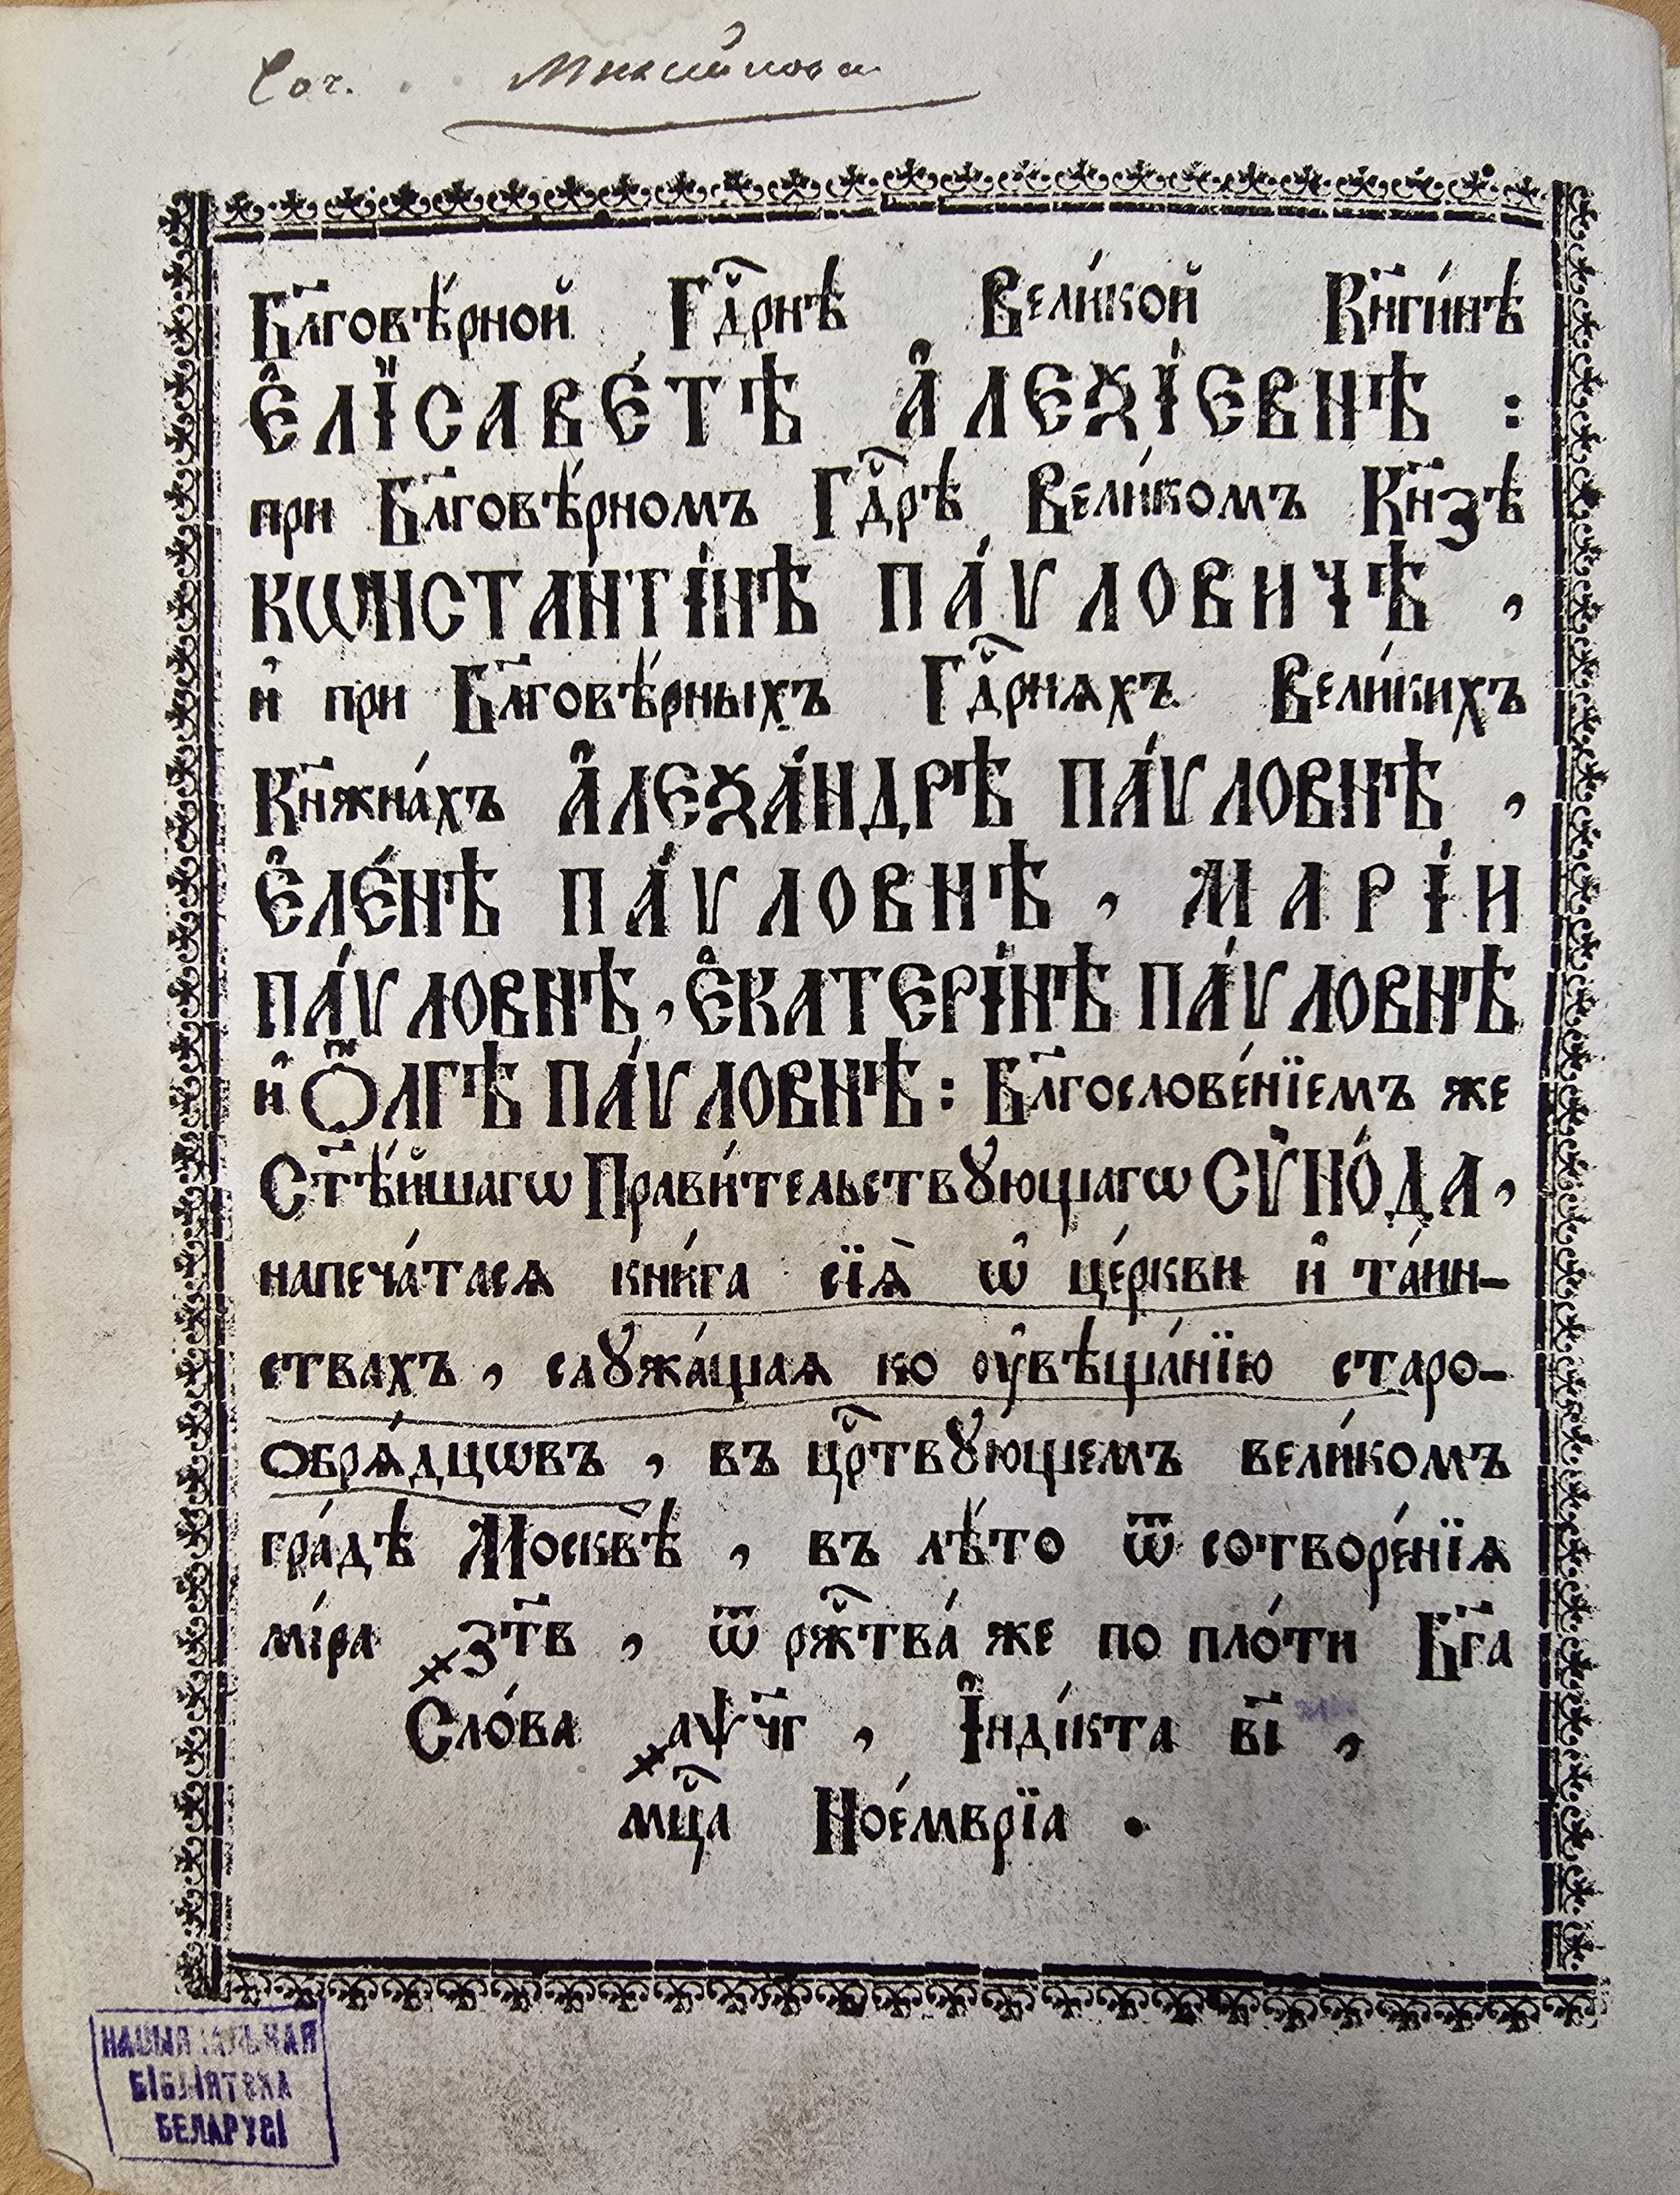 Соч.
Бл҃говѣ́рной Гдⷭ҇рнѣ Вели́кой Кн҃ги́нѣ
Є҆ЛІСАВЕ́ТѢ А҆ЛЕѮІЕВНѢ :
при Бл҃говѣ́рномъ Гдⷭ҇рѣ Вели́комъ Кн҃зѣ
КѠНСТАНТІ́НѢ ПА́ѴЛОВИЧѢ ,
и҆ при Бл҃говѣ́рныхъ Гдⷭ҇рняхъ Вели́кихъ
Кн҃жна́хъ А҆ЛЕѮА́НДРѢ ПА́ѴЛОВНѢ ,
Є҆ЛЕ́НѢ ПА́ѴЛОВНѢ , МАРІ́И
ПА́ѴЛОВНѢ , Є҆КАТЕРІ́НѢ ПА́ѴЛОВНѢ
и҆ Ѻ҆́ЛГѢ ПА́ѴЛОВНѢ : Бл҃гослове́нїемъ же
Ст҃ѣ́йшагѡ Прави́тельствꙋющагѡ СѴНО́ДА ,
напеча́тася кни́га сїѧ̀ ѡ҆ це́ркви и҆ та́ин-
ствахъ , слꙋжа́щаѧ ко ᲂу҆вѣща́нїю старо-
ѻбрѧ́дцѡвъ , въ црⷭ҇твꙋющемъ вели́комъ
гра́дѣ Москвѣ̀ , въ лѣ́то ѿ сотворе́нїѧ
мі́ра ҂зт҃в , ѿ ржⷭ҇тва́ же по пло́ти Бг҃а
Сло́ва ҂аѱч҃г , І҆нді́кта в҃і ,
мцⷭ҇а Ное́мврїа .
НАЦЫЯНАЛЬНАЯ
БІБЛІЯТЭКА
БЕЛАРУСІ